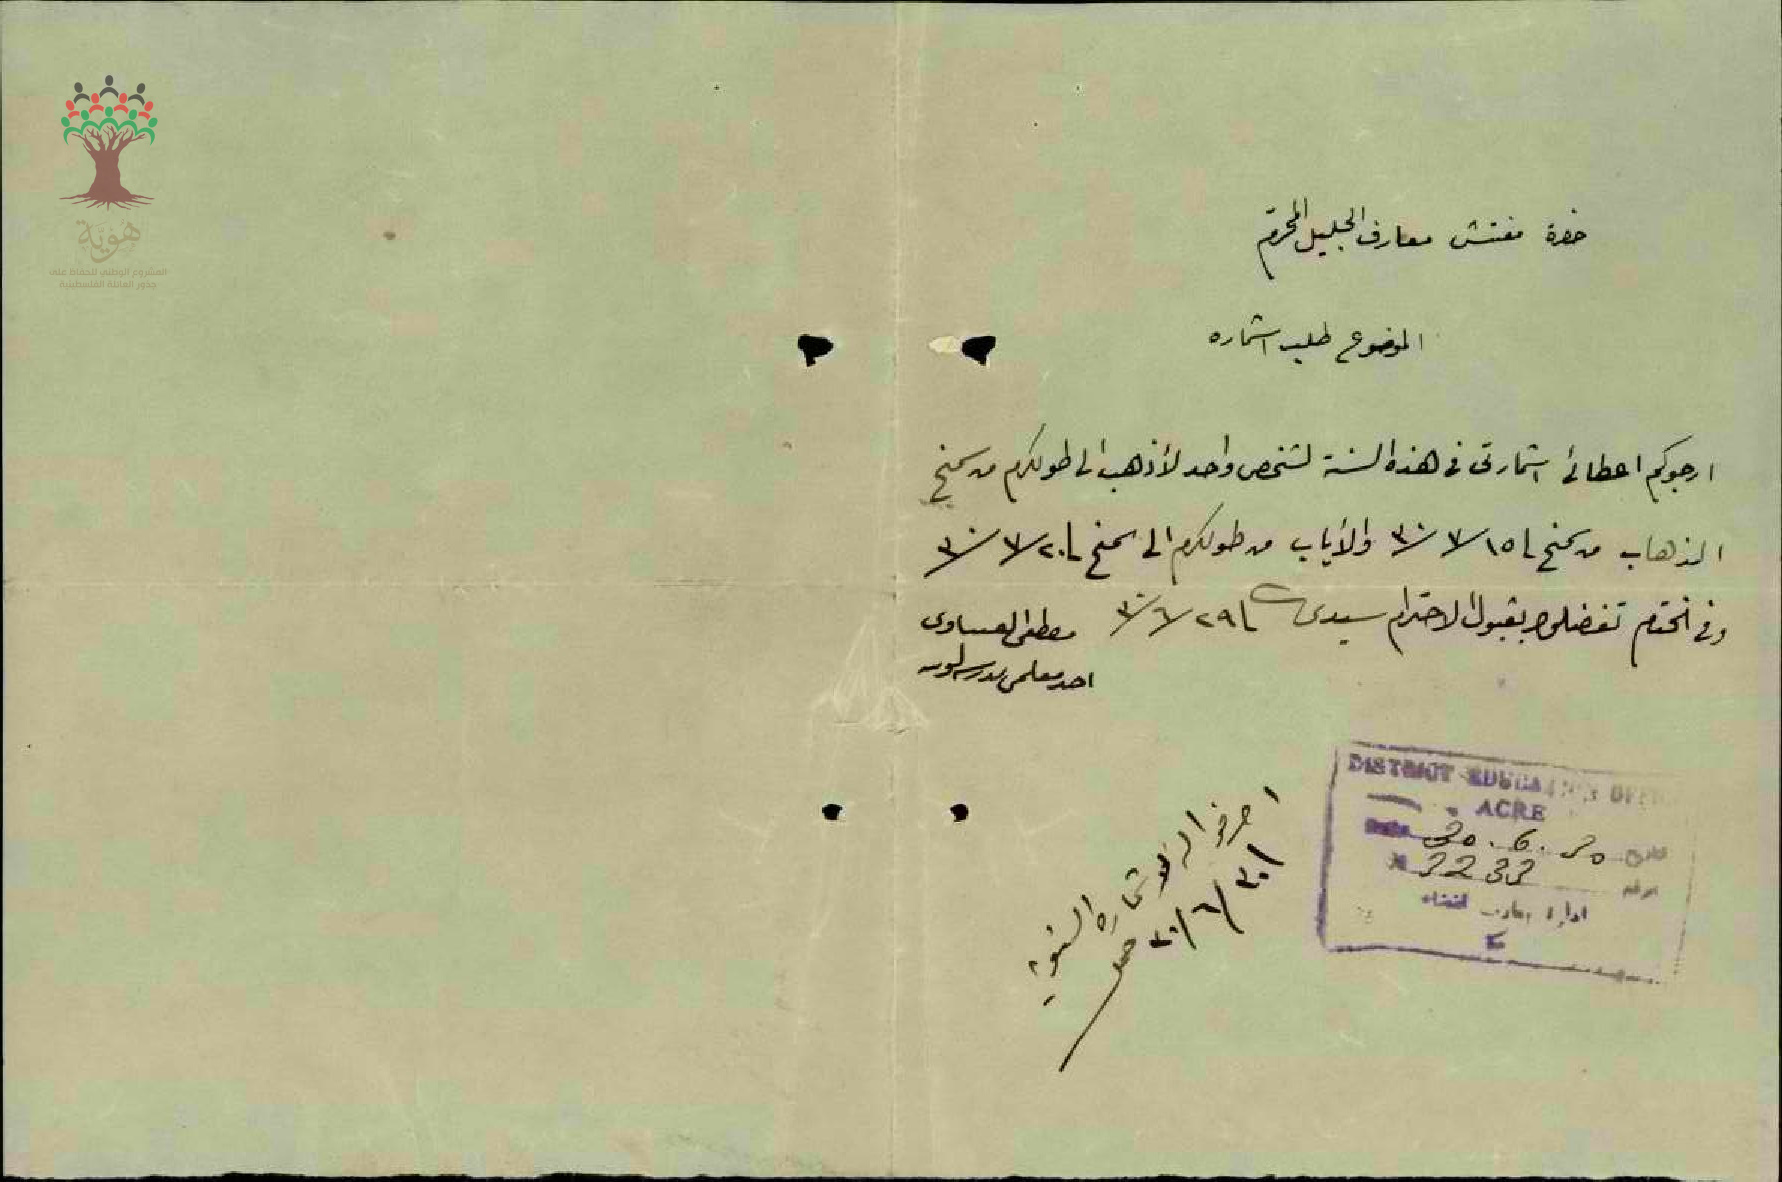 هوية
المشروع الوطني للحفاظ على
جذور العائلة الفلسطينية
حضرة مفتش معارف الجليل المحترم
الموضوع طلب استماره
ارجوكم اعطائي استمارتي في هذه السنة لشخص واحد لأذهب الى طولكرم من سمخ
الذهاب من سمخ في ١٥/٧/٣٠ والأياب من طولكرم الى سمخ في ٢٠/٧/٣٠
وفي الختام تفضلوا بقبول الاحترام سيدي في ٢٩/٦/٣٠ مصطفى العيساوي
احد معلمي مدرسة
DISTRICT EDUCATION OFFICE
ACRE
Date 30.6.30 تاريخ
N 2232 الرقم
ادارة معارف لقضاء
عكا
الاستماره السنوية
٣٠/٦/٣٠